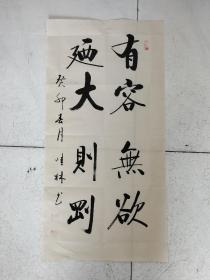 有容無欲
廼大則剛
癸卯春月 桂林书